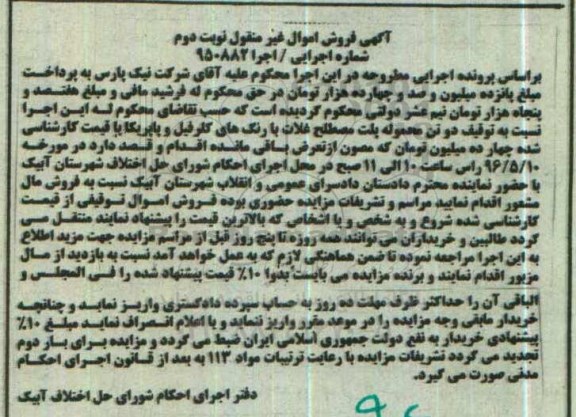 آگهی فروش اموال غیر منقول نوبت دوم
شماره اجرایی / اجرا ۹۵۰۸۸۲
براساس پرونده اجرایی مطروحه در این اجرا محکوم علیه آقای شرکت نیک پارس به پرداخت
مبلغ پانزده میلیون و صد و چهارده هزار تومان در حق محکوم له فرشید مافی و مبلغ هفتصد و
پنجاه هزار تومان نیم عشر دولتی محکوم گردیده است که حسب تقاضای محکوم لـه ایـن اجرا
نسبت به توقیف دو تن محموله پلت مصطلح غلات با رنگ های کلرفیل و پاپریکا با قیمت کارشناسی
شده چهار ده میلیون تومان که مصون ازتعرض باقی مانده اقـدام و قـصد دارد در مورخـه
۹۶/۵/۱۰ راس ساعت ۱۰ الی ۱۱ صبح در محل اجرای احکام شورای حل اختلاف شهرستان آبیک
با حضور نماینده محترم دادستان دادسرای عمومی و انقلاب شهرستان آبیک نسبت به فروش مال
مشعور اقدام نمایید مراسم و تشریفات مزایده حضوری بوده فـروش امـوال تـوقیفی از قیمت
کارشناسی شده شروع و به شخص و یا اشخاص که بالاترین قیمت را پیشنهاد نمایند منتقـل مـی
گردد طالبین و خریداران می توانند همه روزه تا پنج روز قبل از مراسم مزایده جهت مزید اطلاع
به این اجرا مراجعه نموده تا ضمن هماهنگی لازم که به عمل خواهد آمد نسبت به بازدید از مـال
مزبور اقدام نمایند و برنده مزایده می بایست بدوا ۱۰٪ قیمت پیشنهاد شده را فـی المجلـس و
الباقی آن را حداکثر ظرف مهلت ده روز به حساب سپرده دادگستری واریـز نمایـد و چنانچـه
خریدار مابقی وجه مزایده را در موعد مقرر واریز ننماید و یا اعلام انصراف نمایـد مبلـغ ۱۰٪
پیشنهادی خریدار به نفع دولت جمهوری اسلامی ایران ضبط می گردد و مزایده برای بـار دوم
تجدید می گردد تشریفات مزایده با رعایت ترتیبات مواد ۱۱۳ به بعد از قـانون اجـرای احکـام
مدنی صورت می گیرد.
دفتر اجرای احکام شورای حل اختلاف آبیک